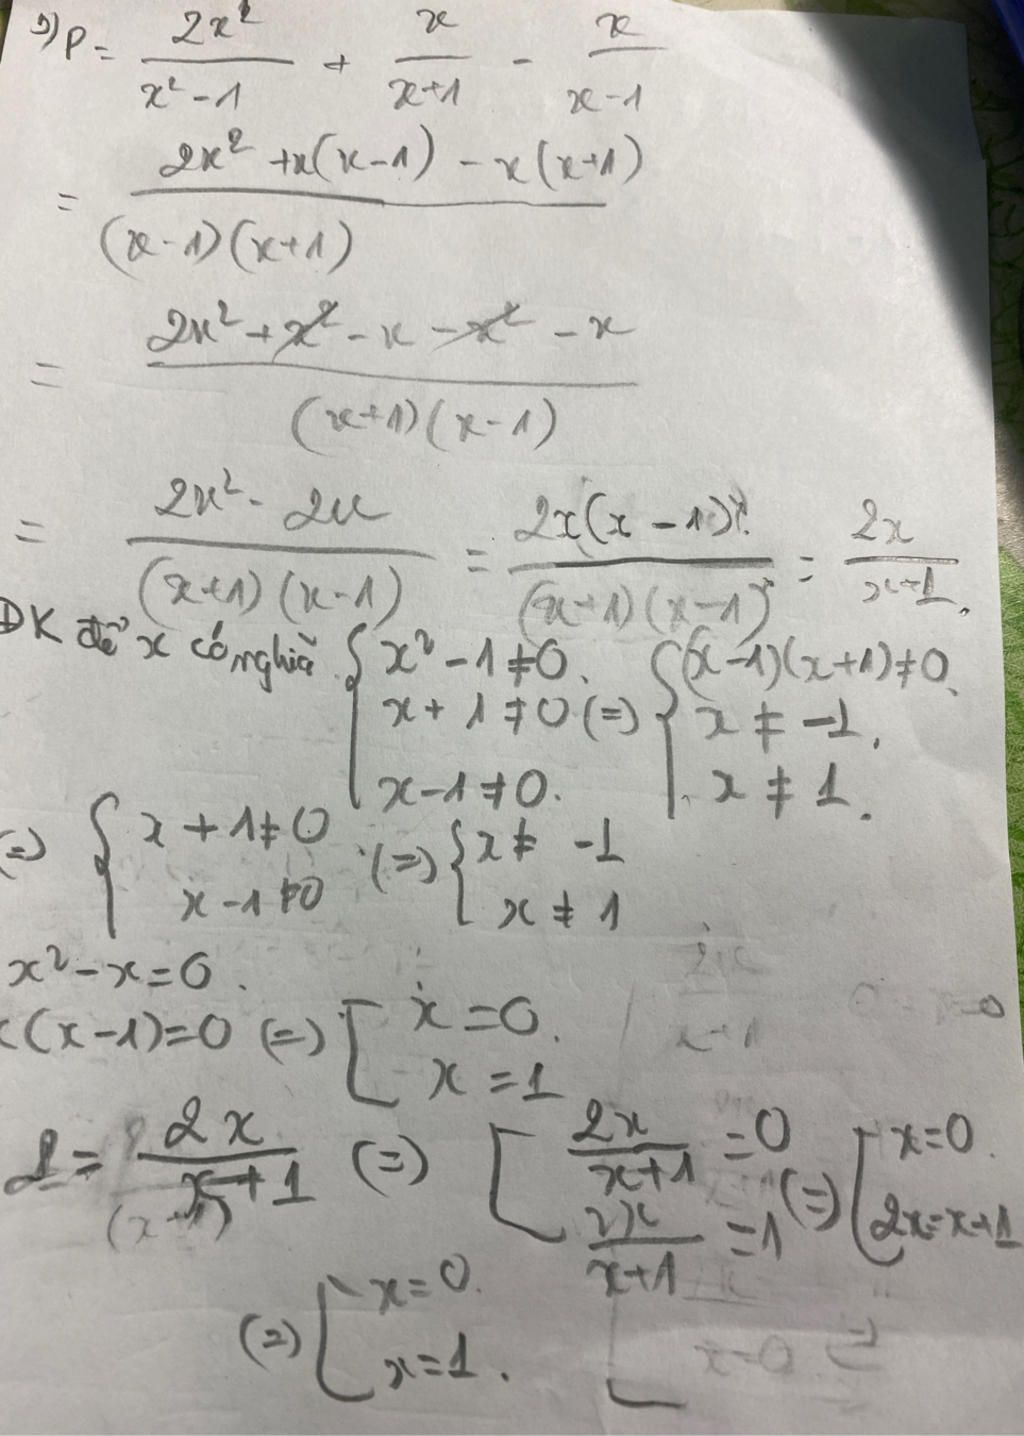 P = 2x² / (x² - 1) + x / (x+1) - x / (x-1)
= (2x² + x(x-1) - x(x+1)) / ((x-1)(x+1))
= (2x² + x² - x - x² - x) / ((x+1)(x-1))
= (2x² - 2x) / ((x+1)(x-1)) = 2x(x-1) / ((x+1)(x-1)) = 2x / (x+1).
ĐK để x có nghĩa { x² - 1 ≠ 0. x + 1 ≠ 0 x - 1 ≠ 0. (=) { (x-1)(x+1) ≠ 0. x ≠ -1. x ≠ 1.
(=) { x + 1 ≠ 0 x - 1 ≠ 0 (=) { x ≠ -1 x ≠ 1
x² - x = 0.
x(x-1) = 0 (=) [ x = 0. x = 1
= 2x / (x+1) (=) [ 2x / (x+1) = 0 2x / (x+1) = 1 (=) [ x = 0. 2x = x+1
(=) [ x = 0. x = 1.